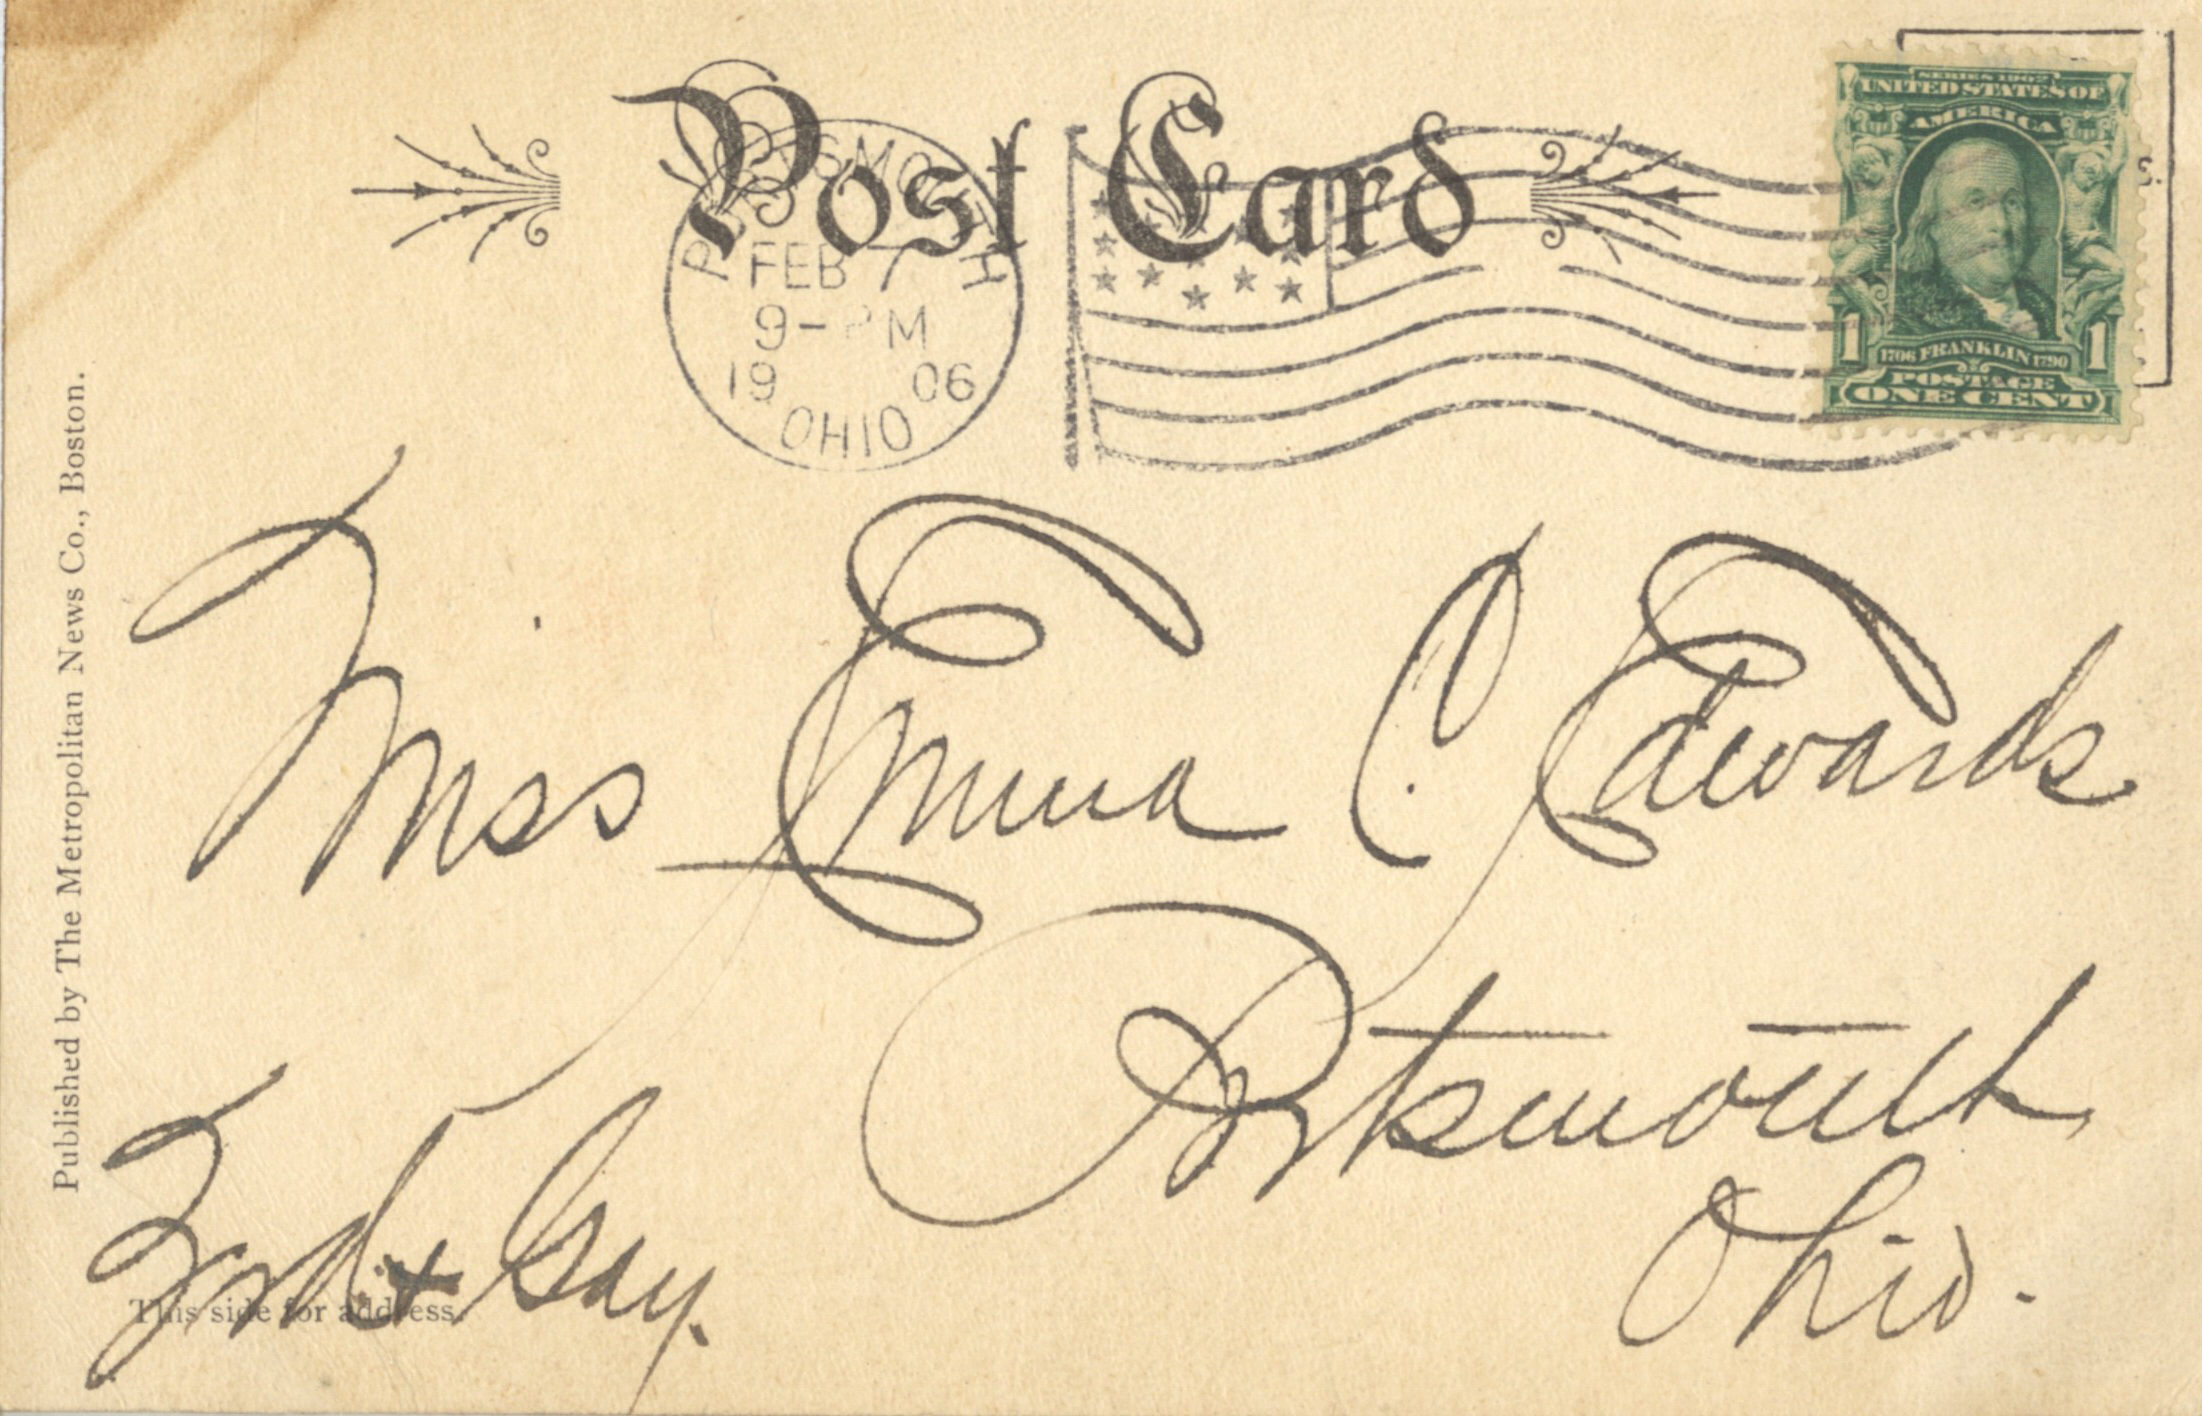 Post Card
PORTSMOUTH
FEB 7
9-PM
19 06
OHIO
SERIES 1902
UNITED STATES OF
AMERICA
1706 FRANKLIN 1790
1 1
POSTAGE
ONE CENT
Published by The Metropolitan News Co., Boston.
Miss Emma C. Edwards
Portsmouth,
Ohio.
2nd & Gay.
This side for address.